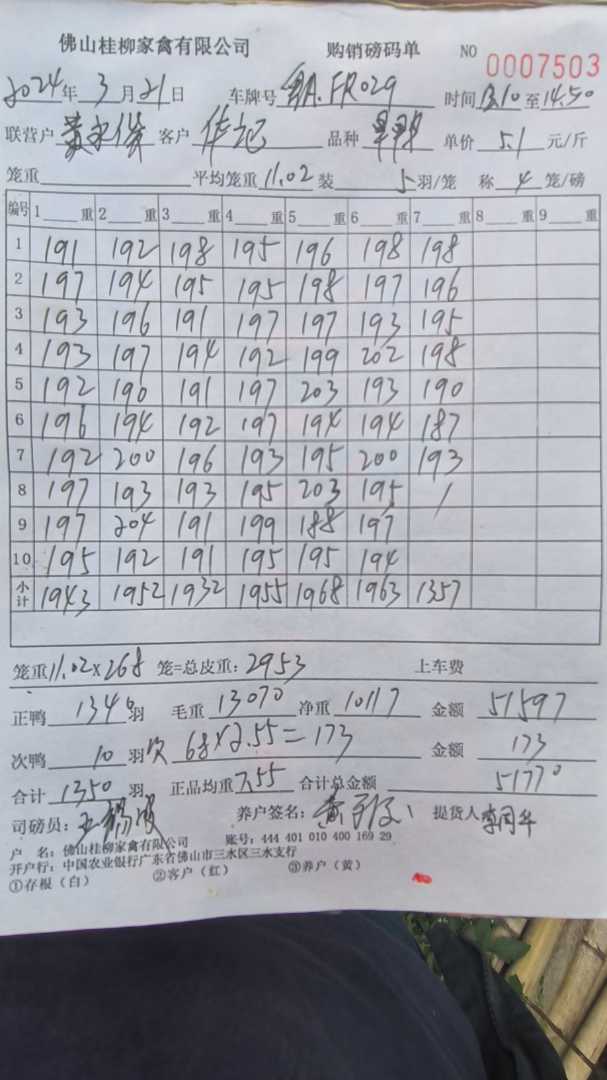 佛山桂柳家禽有限公司 购销磅码单 NO 0007503
2024年 3月21日 车牌号 粤A.FR029 时间13.10至14.50
联营户 黄 客户 华记 品种 单价 5.1 元/斤
笼重 平均笼重 11.02 装 5 羽/笼 称 4 笼/磅
编号 1 重 2 重 3 重 4 重 5 重 6 重 7 重 8 重 9 重
1 191 192 198 195 196 198 198
2 197 194 195 195 198 197 196
3 193 196 191 197 197 193 195
4 193 197 194 192 199 202 198
5 192 190 191 197 203 193 190
6 196 194 192 197 194 194 187
7 192 200 196 193 195 200 193
8 197 193 193 195 203 195 /
9 197 204 191 199 188 197
10 195 192 191 195 195 194
小计 1943 1952 1932 1955 1968 1963 1357
笼重11.02×268 笼=总皮重：2953 上车费
正鸭 1340羽 毛重 13070 净重 10117 金额 51597
次鸭 10 羽 次 68×2.55=173 金额 173
合计 1350 羽 正品均重7.55 合计总金额 51770
司磅员： 养户签名：黄 提货人
户 名：佛山桂柳家禽有限公司 账号：444 401 010 400 169 29
开户行：中国农业银行广东省佛山市三水区三水支行
①存根（白） ②客户（红） ③养户（黄）